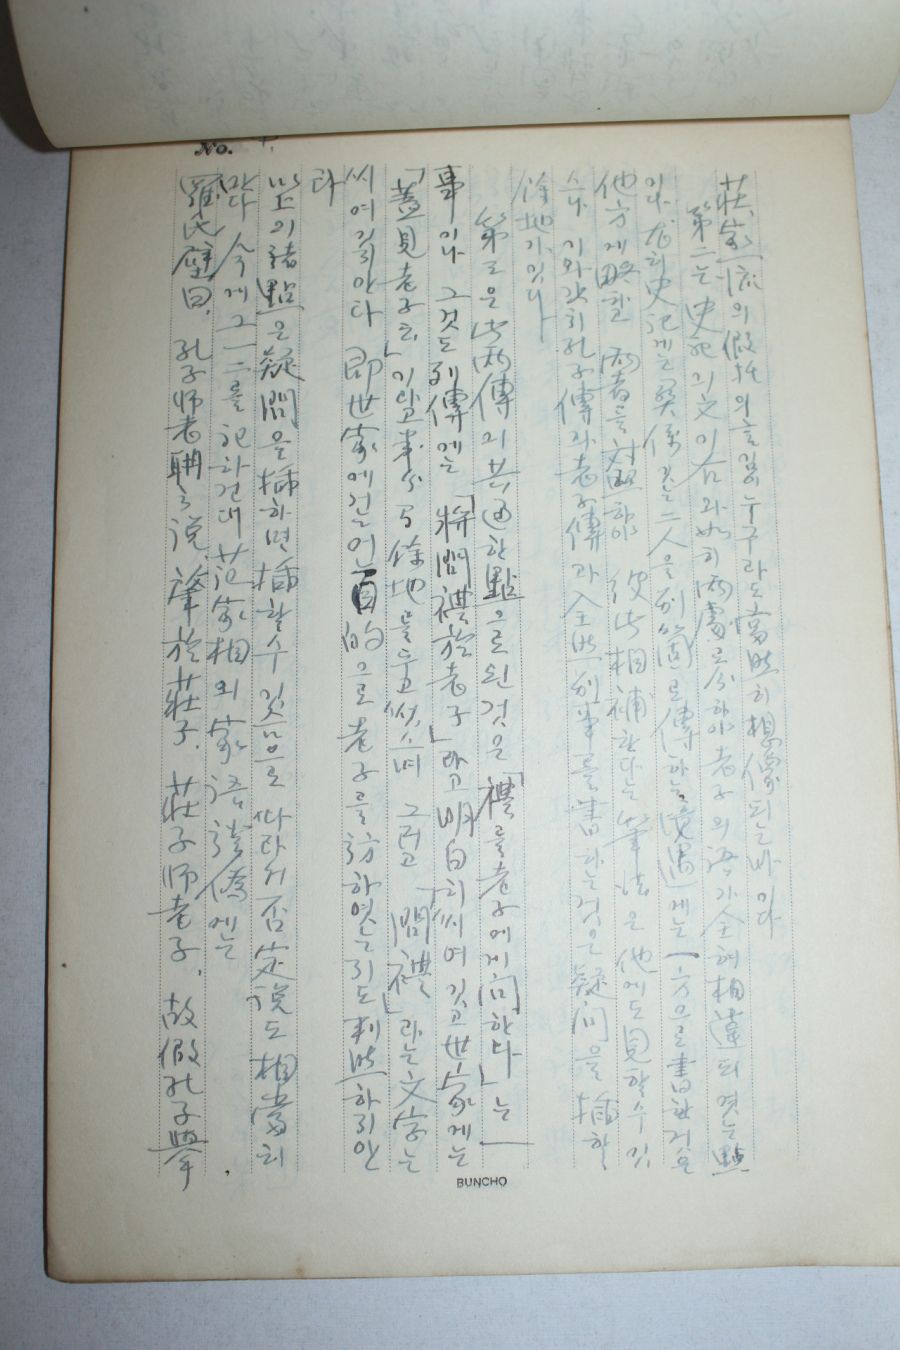 No. 4.
莊家一流의假托의言임은누구라도當然히想像되는바이다
第二는史記의文이右와如히兩處로分하야老子의語가全혀相違되엿는點
이다 史記에는關係잇는二人을別箇로傳하는境遇에는一方으로書한거슬
他方에略할 兩者를對照하야 彼此相補한다는筆法은他에도見할수잇
스나 이와갓치孔子傳과老子傳과全然別事를書하는것은疑問을揷할
餘地가잇다
第三은此兩傳의共通한點으로된것은「禮를老子에게問한다」는一
事이나 그것도列傳에는「將問禮於老子」라고明白히씨여잇고世家에는
「蓋見老子云」이라고多少餘地를두고썻스며 그러고「問禮」라는文字는
씨여잇지안타 即世家에는何目的으로老子를訪하엿는지도判然하지안
타
以上의諸點은疑問을揷하면揷할수잇슴으로따라서否定說도相當히
만타 今에그一二를記하건대范家相의家語證僞에는
羅氏壁曰、孔子師老聃之說、肇於莊子、莊子師老子、故假孔子學
BUNCHO